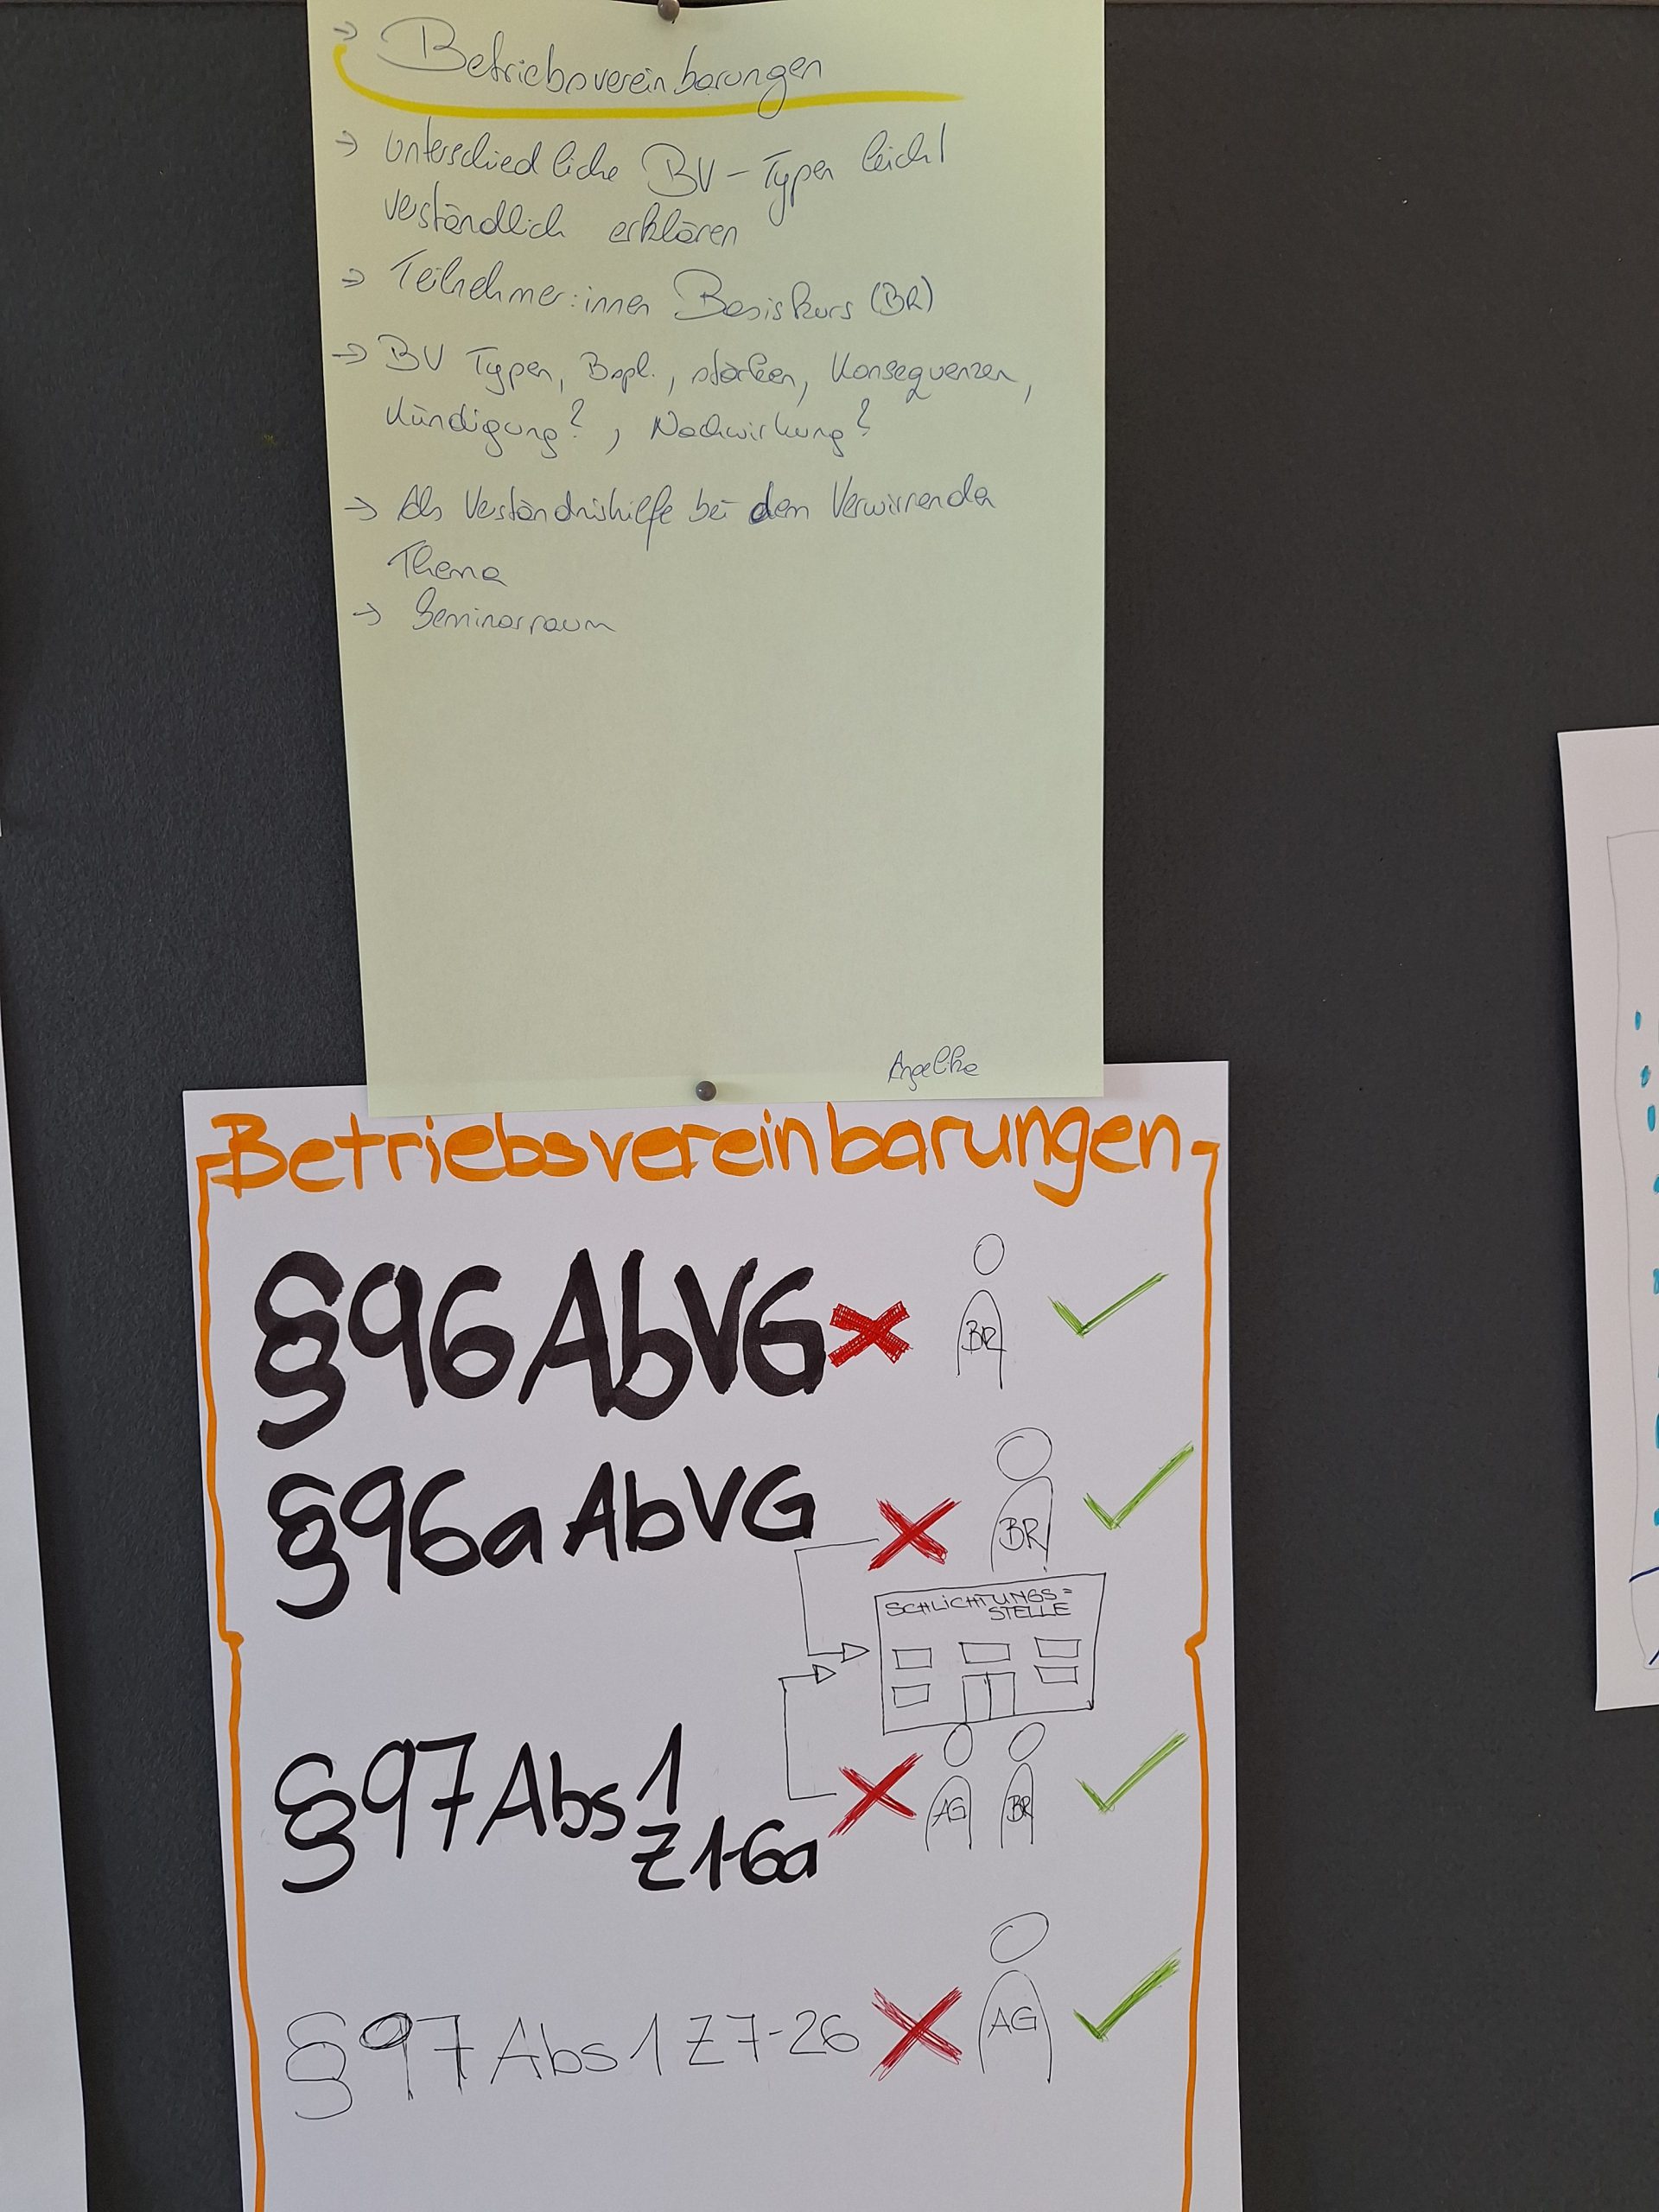 → Betriebsvereinbarungen
→ unterschiedliche BV-Typen leicht
verständlich erklären
→ Teilnehmer:innen Basiskurs (BR)
→ BV Typen, Bspl., stärken, Konsequenzen,
Kündigung?, Nachwirkung?
→ Als Verständnishilfe bei dem Verwirrenden
Thema
→ Seminarraum
Angelika
Betriebsvereinbarungen
§96 AbVG
BR
§96a AbVG
BR
SCHLICHTUNGS=
STELLE
§97 Abs 1
Z1-6a
AG BR
§97 Abs 1 Z7-26
AG